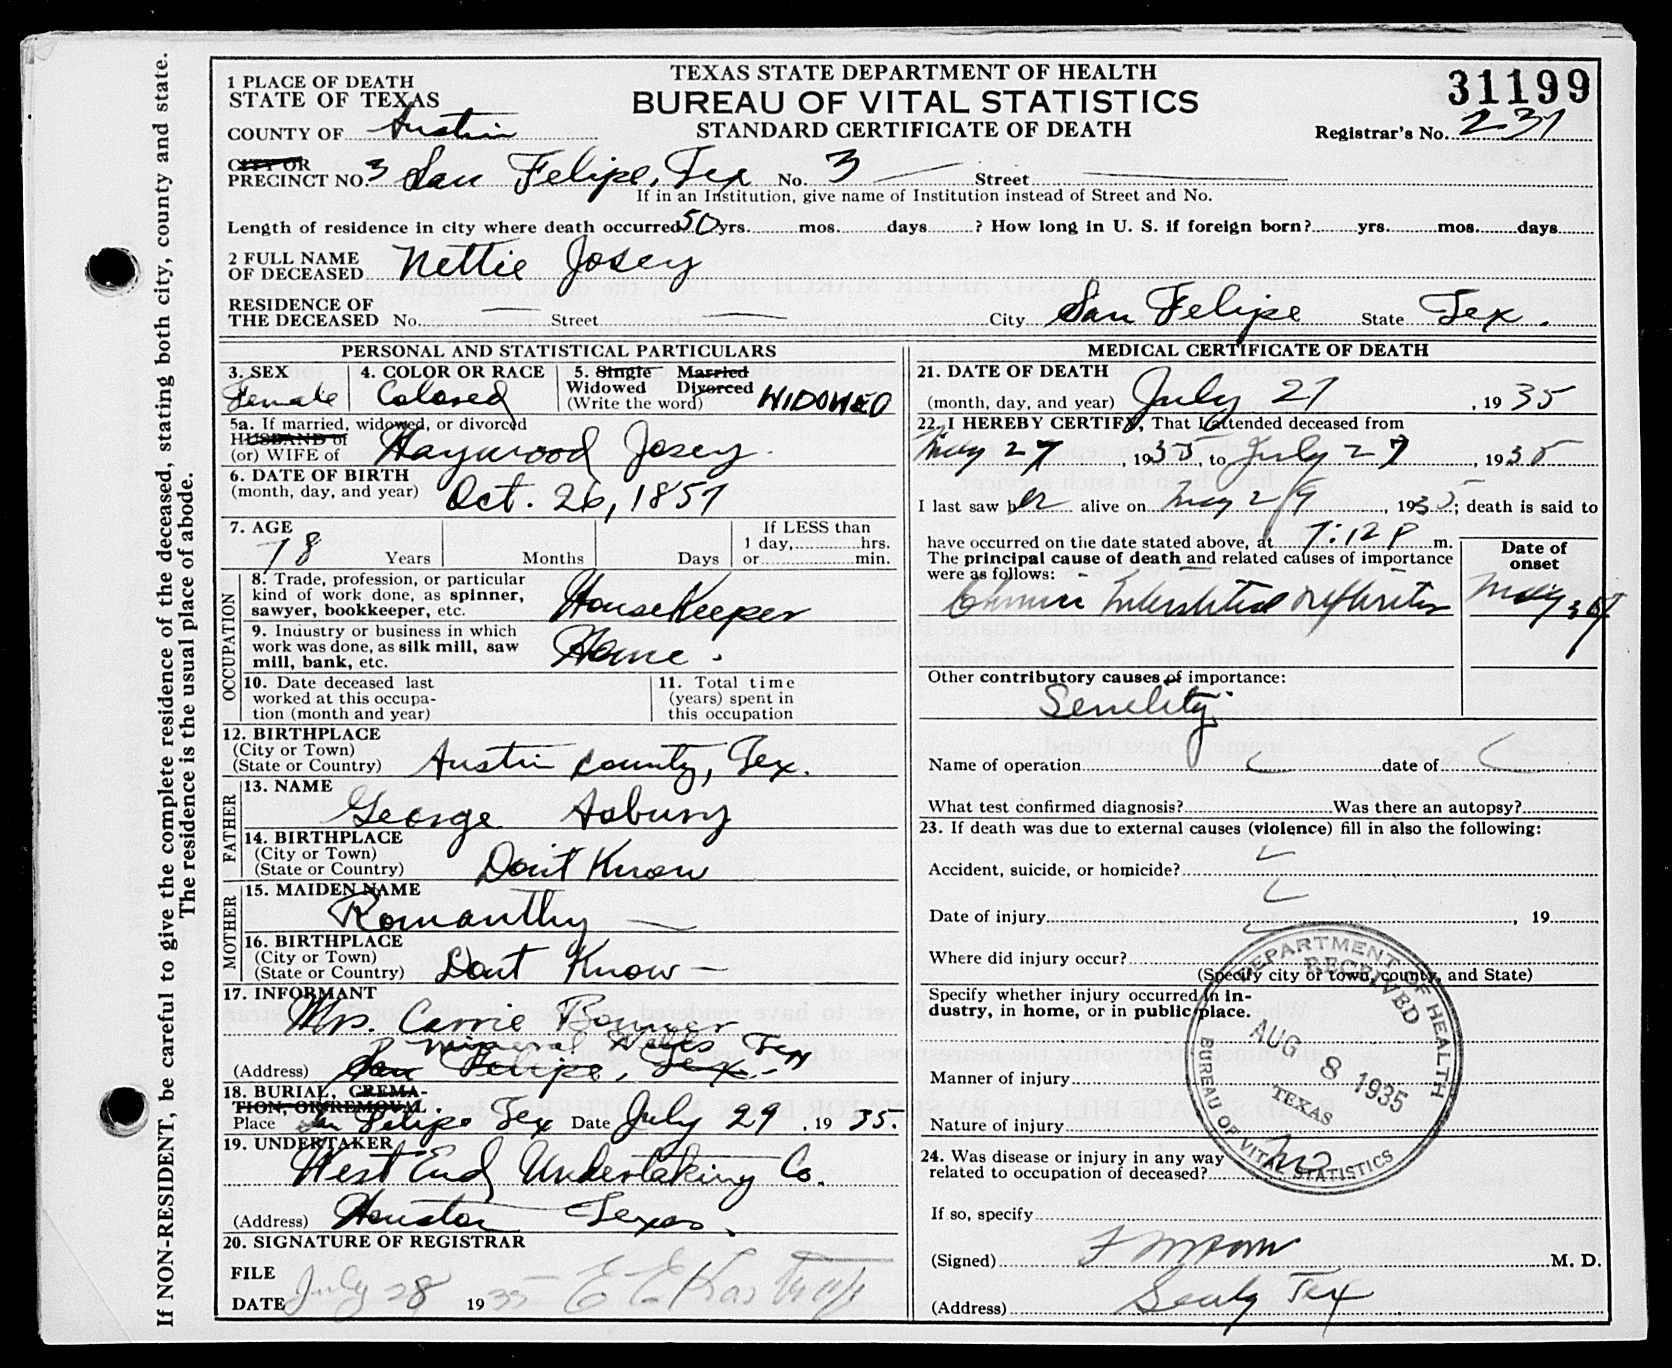 1 PLACE OF DEATH
STATE OF TEXAS
COUNTY OF Austin
TEXAS STATE DEPARTMENT OF HEALTH
BUREAU OF VITAL STATISTICS
STANDARD CERTIFICATE OF DEATH
31199
Registrar's No. 237
CITY OR
PRECINCT NO. 3 San Felipe, Tex No. 3 Street
If in an Institution, give name of Institution instead of Street and No.
Length of residence in city where death occurred 50 yrs. mos. days ? How long in U. S. if foreign born? yrs. mos. days
2 FULL NAME
OF DECEASED Nettie Josey
RESIDENCE OF
THE DECEASED No. Street City San Felipe State Tex.
PERSONAL AND STATISTICAL PARTICULARS
3. SEX
Female
4. COLOR OR RACE
Colored
5. Single Married
Widowed Divorced
(Write the word) WIDOWED
5a. If married, widowed, or divorced
HUSBAND of
(or) WIFE of Haywood Josey.
6. DATE OF BIRTH
(month, day, and year) Oct. 26, 1857
7. AGE
78 Years Months Days
If LESS than
1 day, hrs.
or min.
OCCUPATION
8. Trade, profession, or particular
kind of work done, as spinner,
sawyer, bookkeeper, etc. HouseKeeper
9. Industry or business in which
work was done, as silk mill, saw
mill, bank, etc. Home.
10. Date deceased last
worked at this occupa-
tion (month and year)
11. Total time
(years) spent in
this occupation
12. BIRTHPLACE
(City or Town)
(State or Country) Austin County, Tex.
FATHER
13. NAME
George Asbury
14. BIRTHPLACE
(City or Town)
(State or Country) Don't Know
MOTHER
15. MAIDEN NAME
Romanthy
16. BIRTHPLACE
(City or Town)
(State or Country) Dont Know
17. INFORMANT
Mrs. Carrie Bonner
Mineral Wells Tex
(Address) San Felipe, Tex.
18. BURIAL, CREMA-
TION, OR REMOVAL.
Place San Felipe Tex Date July 29, 1935.
19. UNDERTAKER
West End Undertaking Co.
(Address) Houston Texas.
20. SIGNATURE OF REGISTRAR
FILE
DATE July 28 1935 E E
MEDICAL CERTIFICATE OF DEATH
21. DATE OF DEATH
(month, day, and year) July 27, 1935
22. I HEREBY CERTIFY, That I attended deceased from
May 27, 1935, to July 27, 1935
I last saw her alive on May 29, 1935; death is said to
have occurred on the date stated above, at 7:12 P m.
The principal cause of death and related causes of importance
were as follows:
Chronic Interstitial nephritis
Date of
onset
May
Other contributory causes of importance:
Senelity
Name of operation date of
What test confirmed diagnosis? Was there an autopsy?
23. If death was due to external causes (violence) fill in also the following:
Accident, suicide, or homicide?
Date of injury , 19
Where did injury occur?
(Specify city or town, county, and State)
Specify whether injury occurred in in-
dustry, in home, or in public place.
Manner of injury
Nature of injury
24. Was disease or injury in any way
related to occupation of deceased? no
If so, specify
(Signed) M. D.
(Address) Sealy Tex
DEPARTMENT OF HEALTH
RECEIVED
AUG 8 1935
TEXAS
BUREAU OF VITAL STATISTICS
If NON-RESIDENT, be careful to give the complete residence of the deceased, stating both city, county and state.
The residence is the usual place of abode.